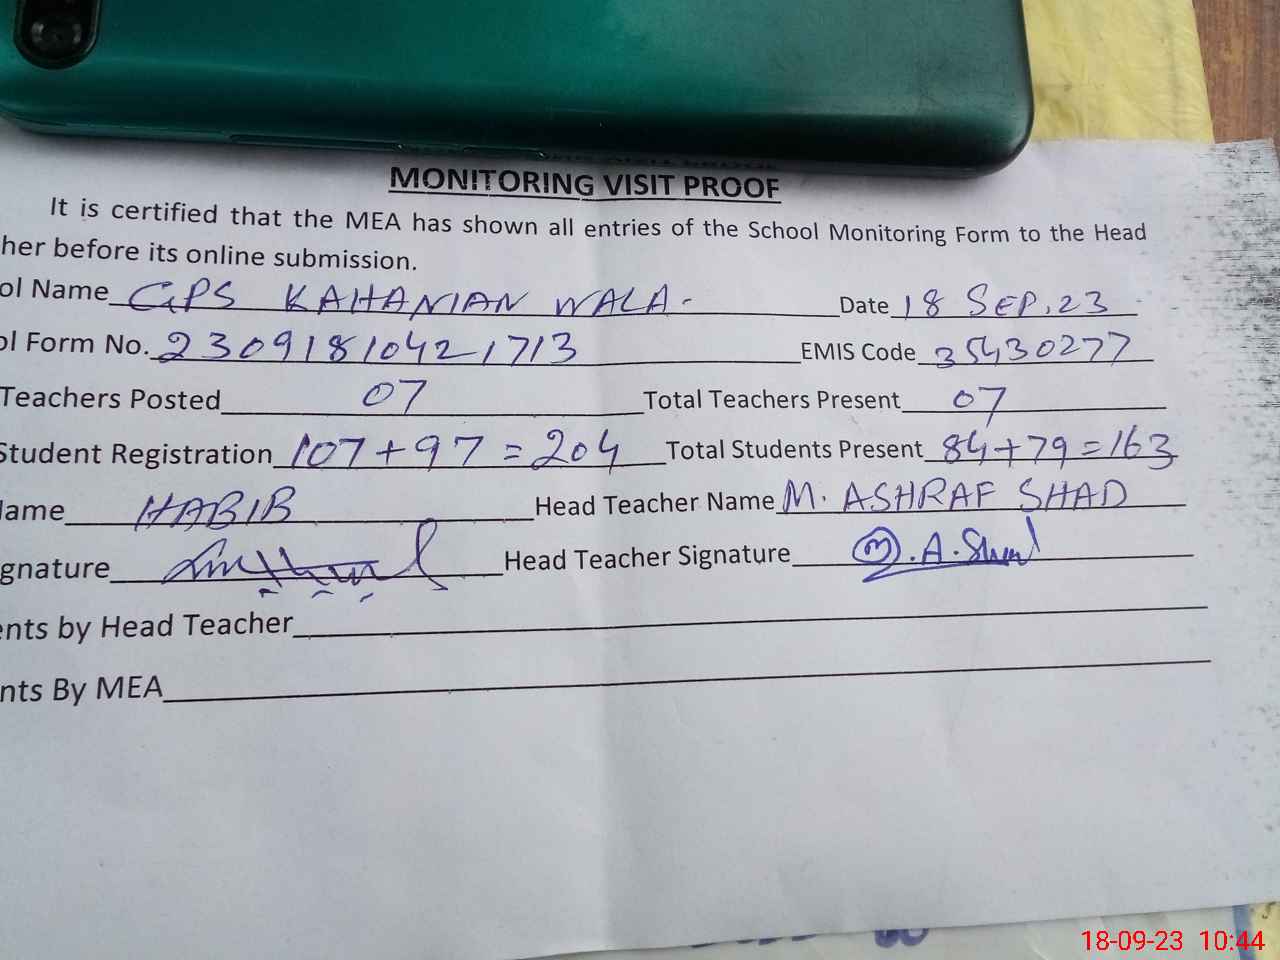 MONITORING VISIT PROOF
It is certified that the MEA has shown all entries of the School Monitoring Form to the Head
her before its online submission.
ol Name GPS KAHANIAN WALA. Date 18 SEP. 23
ol Form No. 23091810421713 EMIS Code 35430277
Teachers Posted 07 Total Teachers Present 07
Student Registration 107+97=204 Total Students Present 84+79=163
Name HABIB Head Teacher Name M. ASHRAF SHAD
gnature Head Teacher Signature M.A.Shad
ents by Head Teacher
nts By MEA
18-09-23 10:44